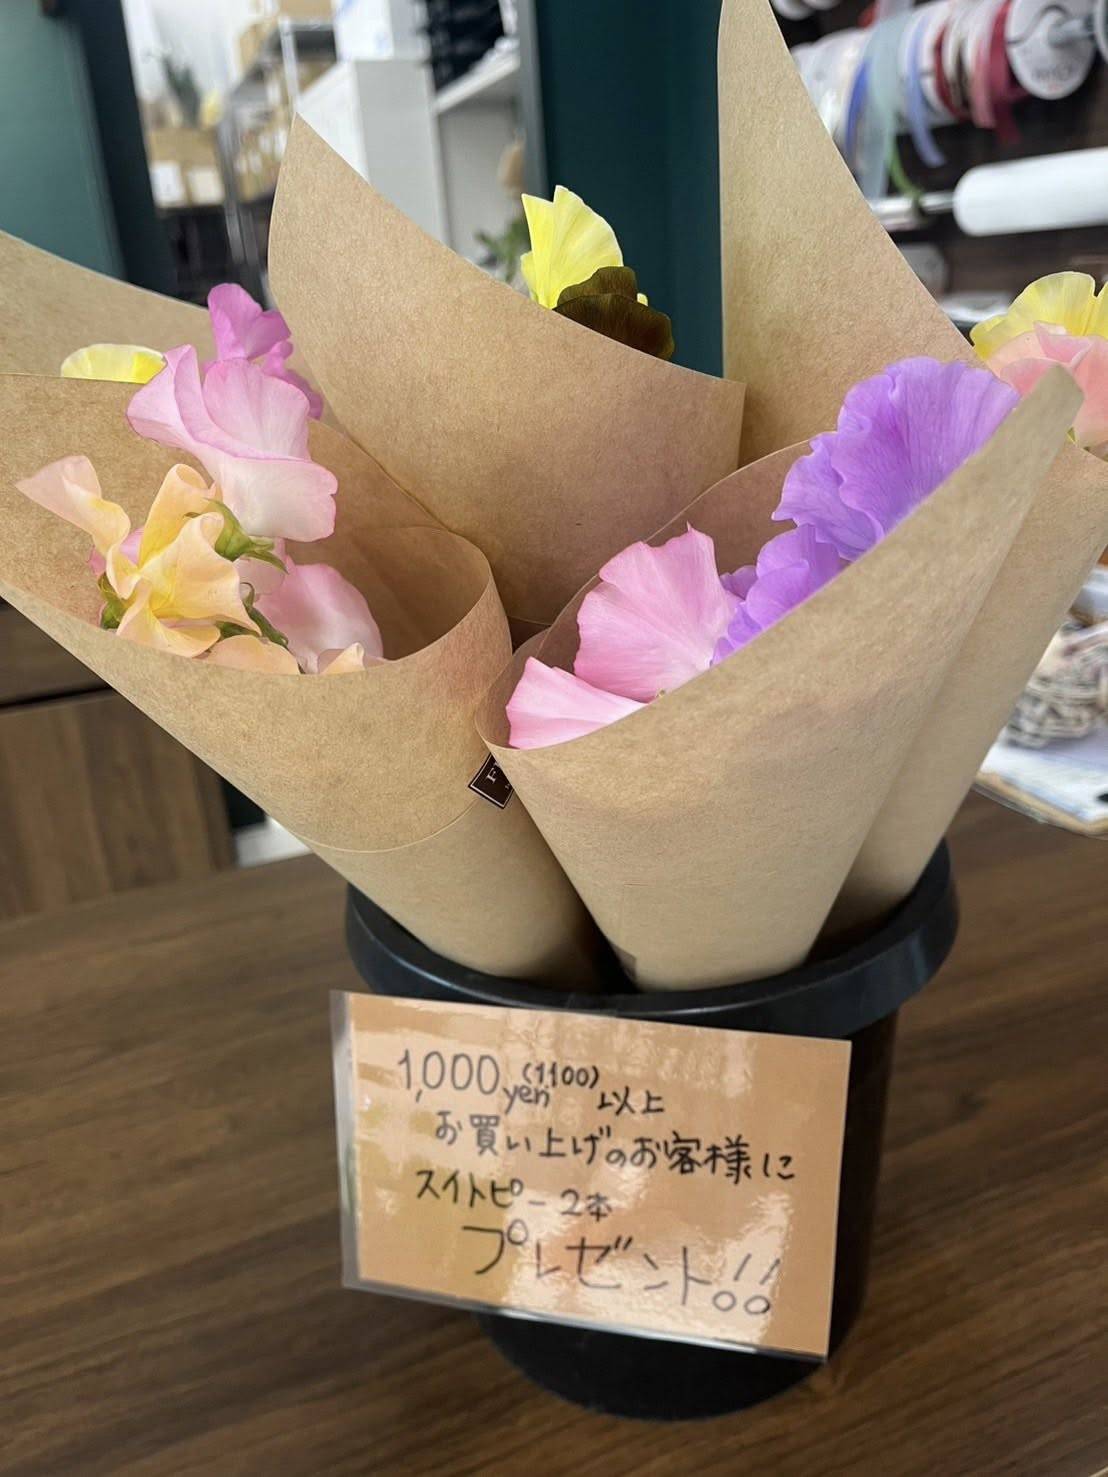 1,000yen(1100)以上
お買い上げのお客様に
スイトピー2本
プレゼント!!